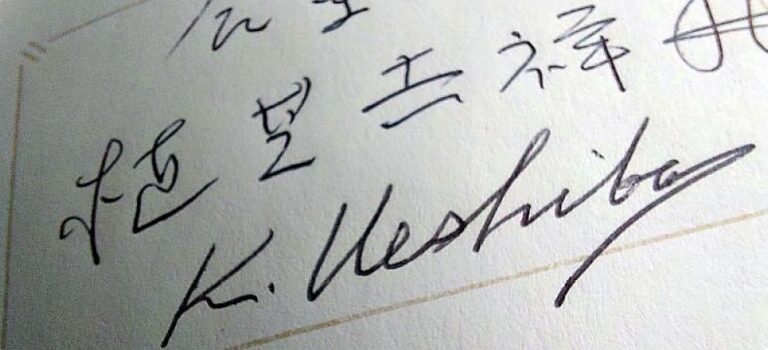 植芝吉祥
K. Ueshiba